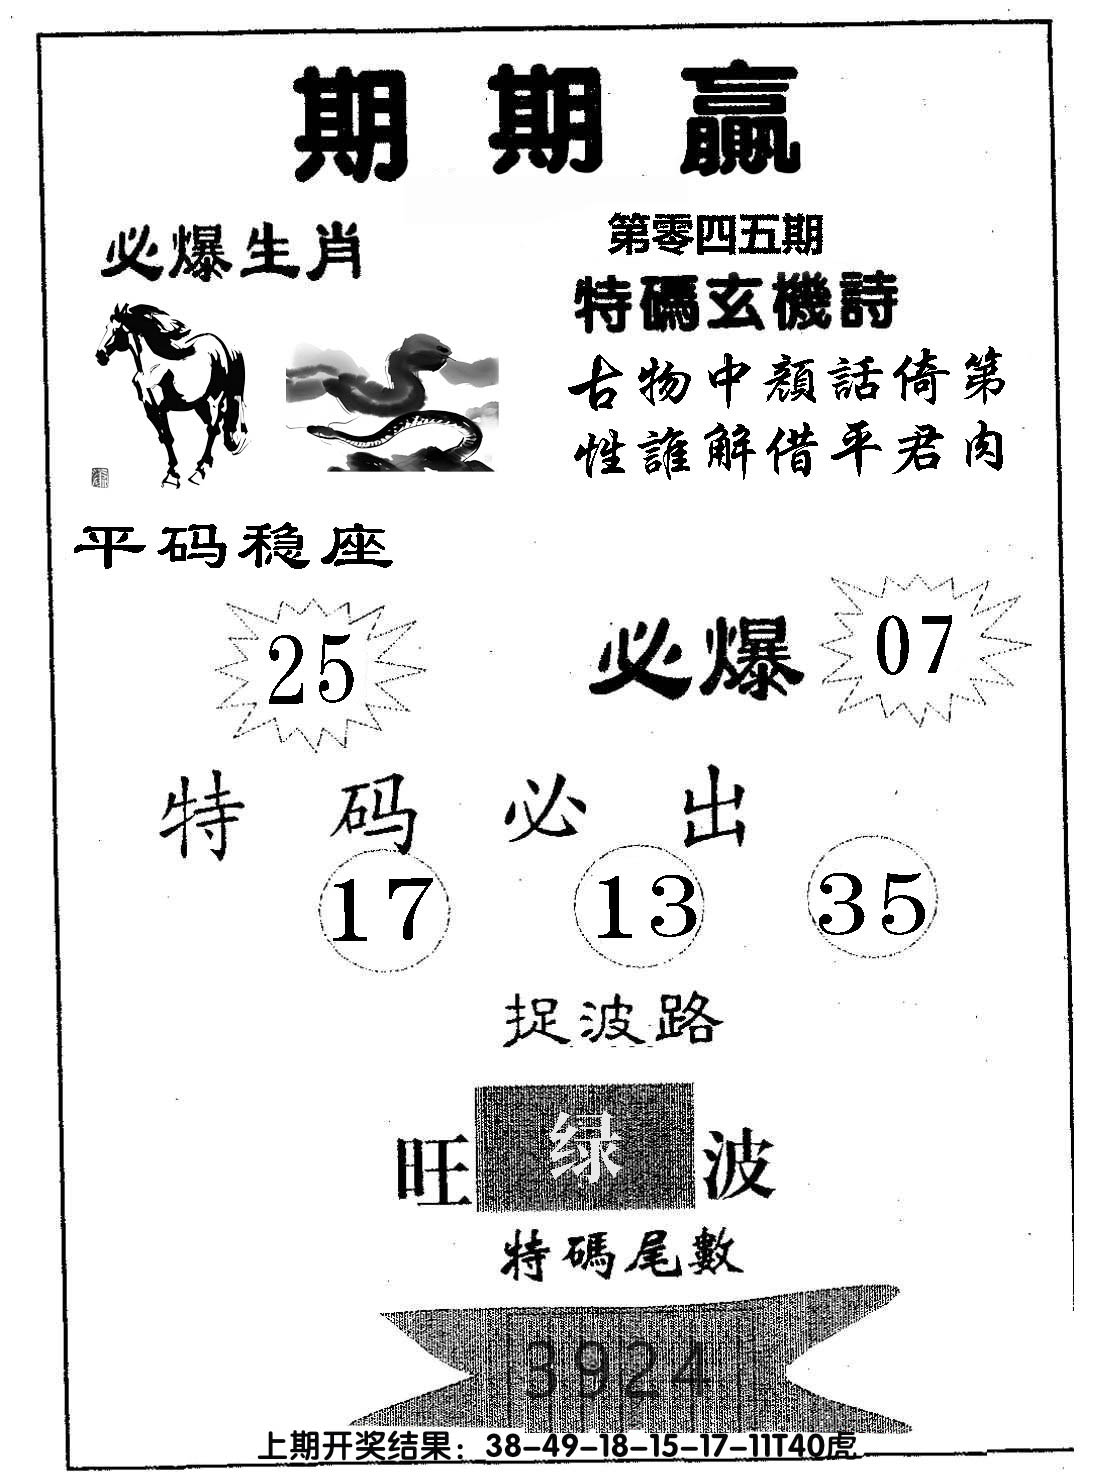 期期赢
必爆生肖
第零四五期
特碼玄機詩
古物中顔話倚第
性誰解借平君肉
平码稳座
25
必爆 07
特码必出
17 13 35
捉波路
旺 绿 波
特碼尾數
3924
上期开奖结果：38-49-18-15-17-11T40虎